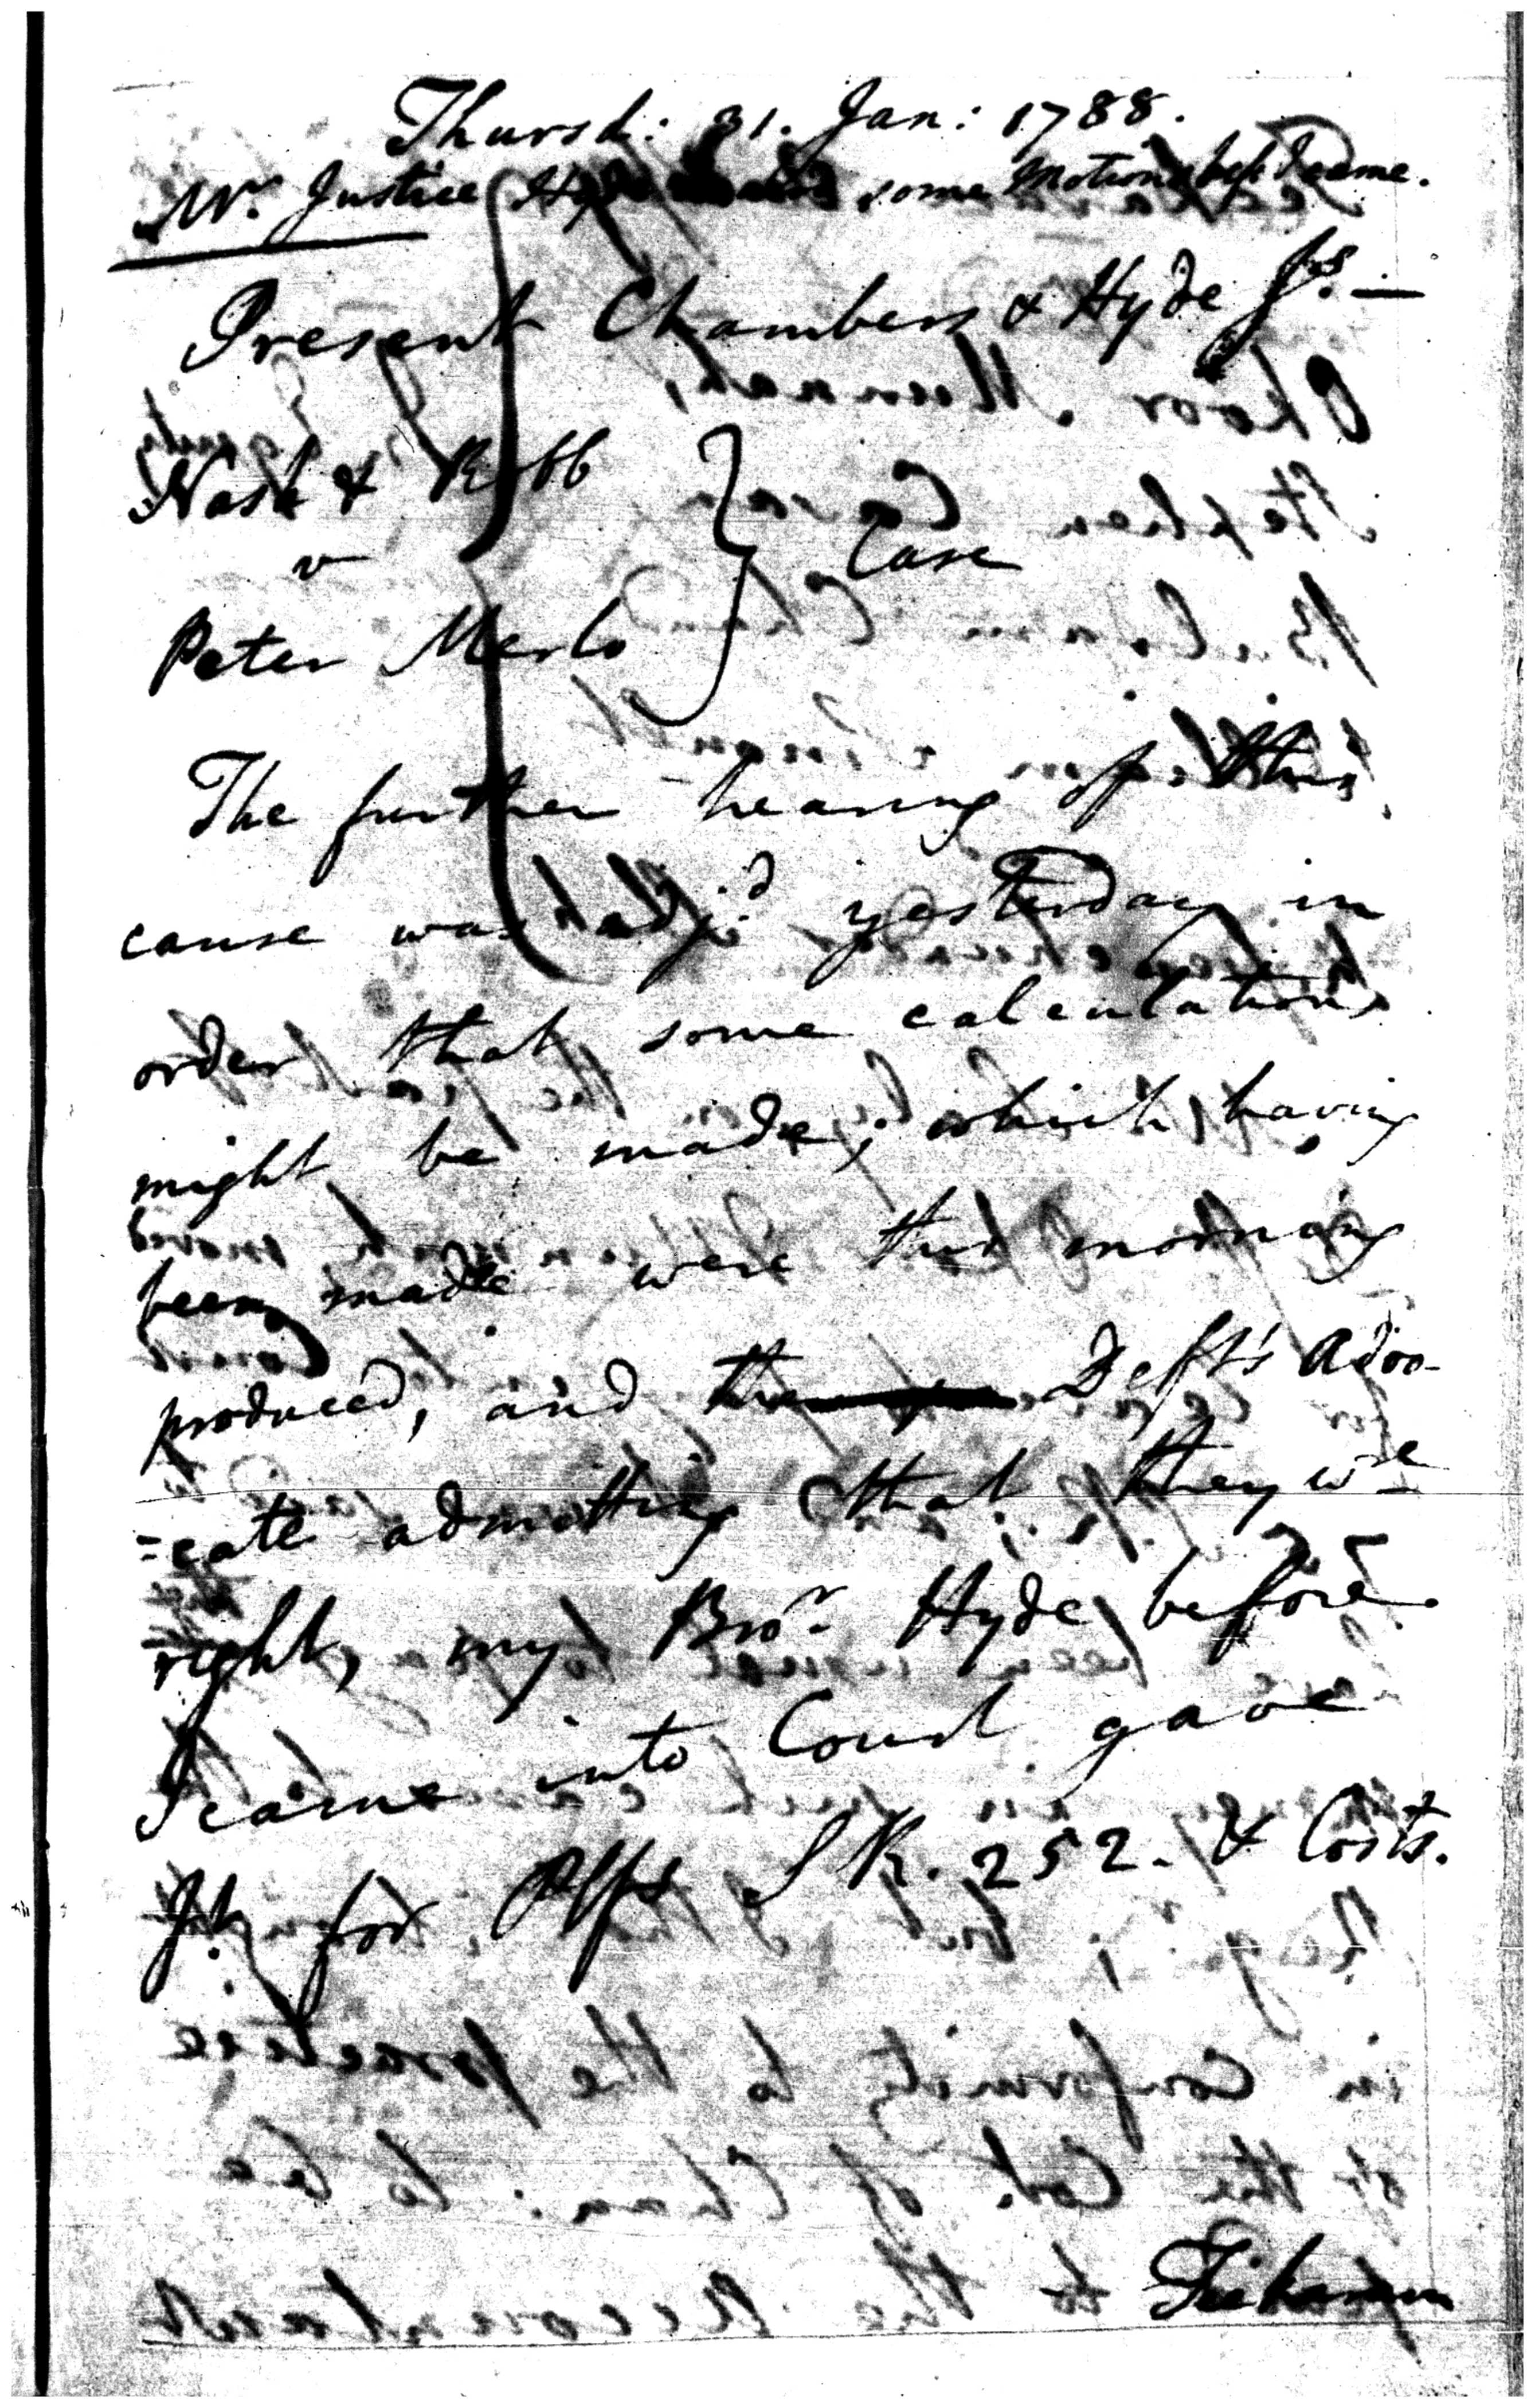 Thursd: 31. Jan: 1788.
Mr. Justice Hyde some Motions bef. I came.
Present Chambers & Hyde Js. —
Nash & Robb
v
Case
Peter Merlo
The further hearing of this
cause was adj:d yesterday in
order that some calculations
might be made; which having
been made were this morning
produced, and the Deft's Advo-
=cate admitting that they we
right, my Bror. Hyde before
I came into Court gave
Jt. for Plfs SR. 252. & Costs.